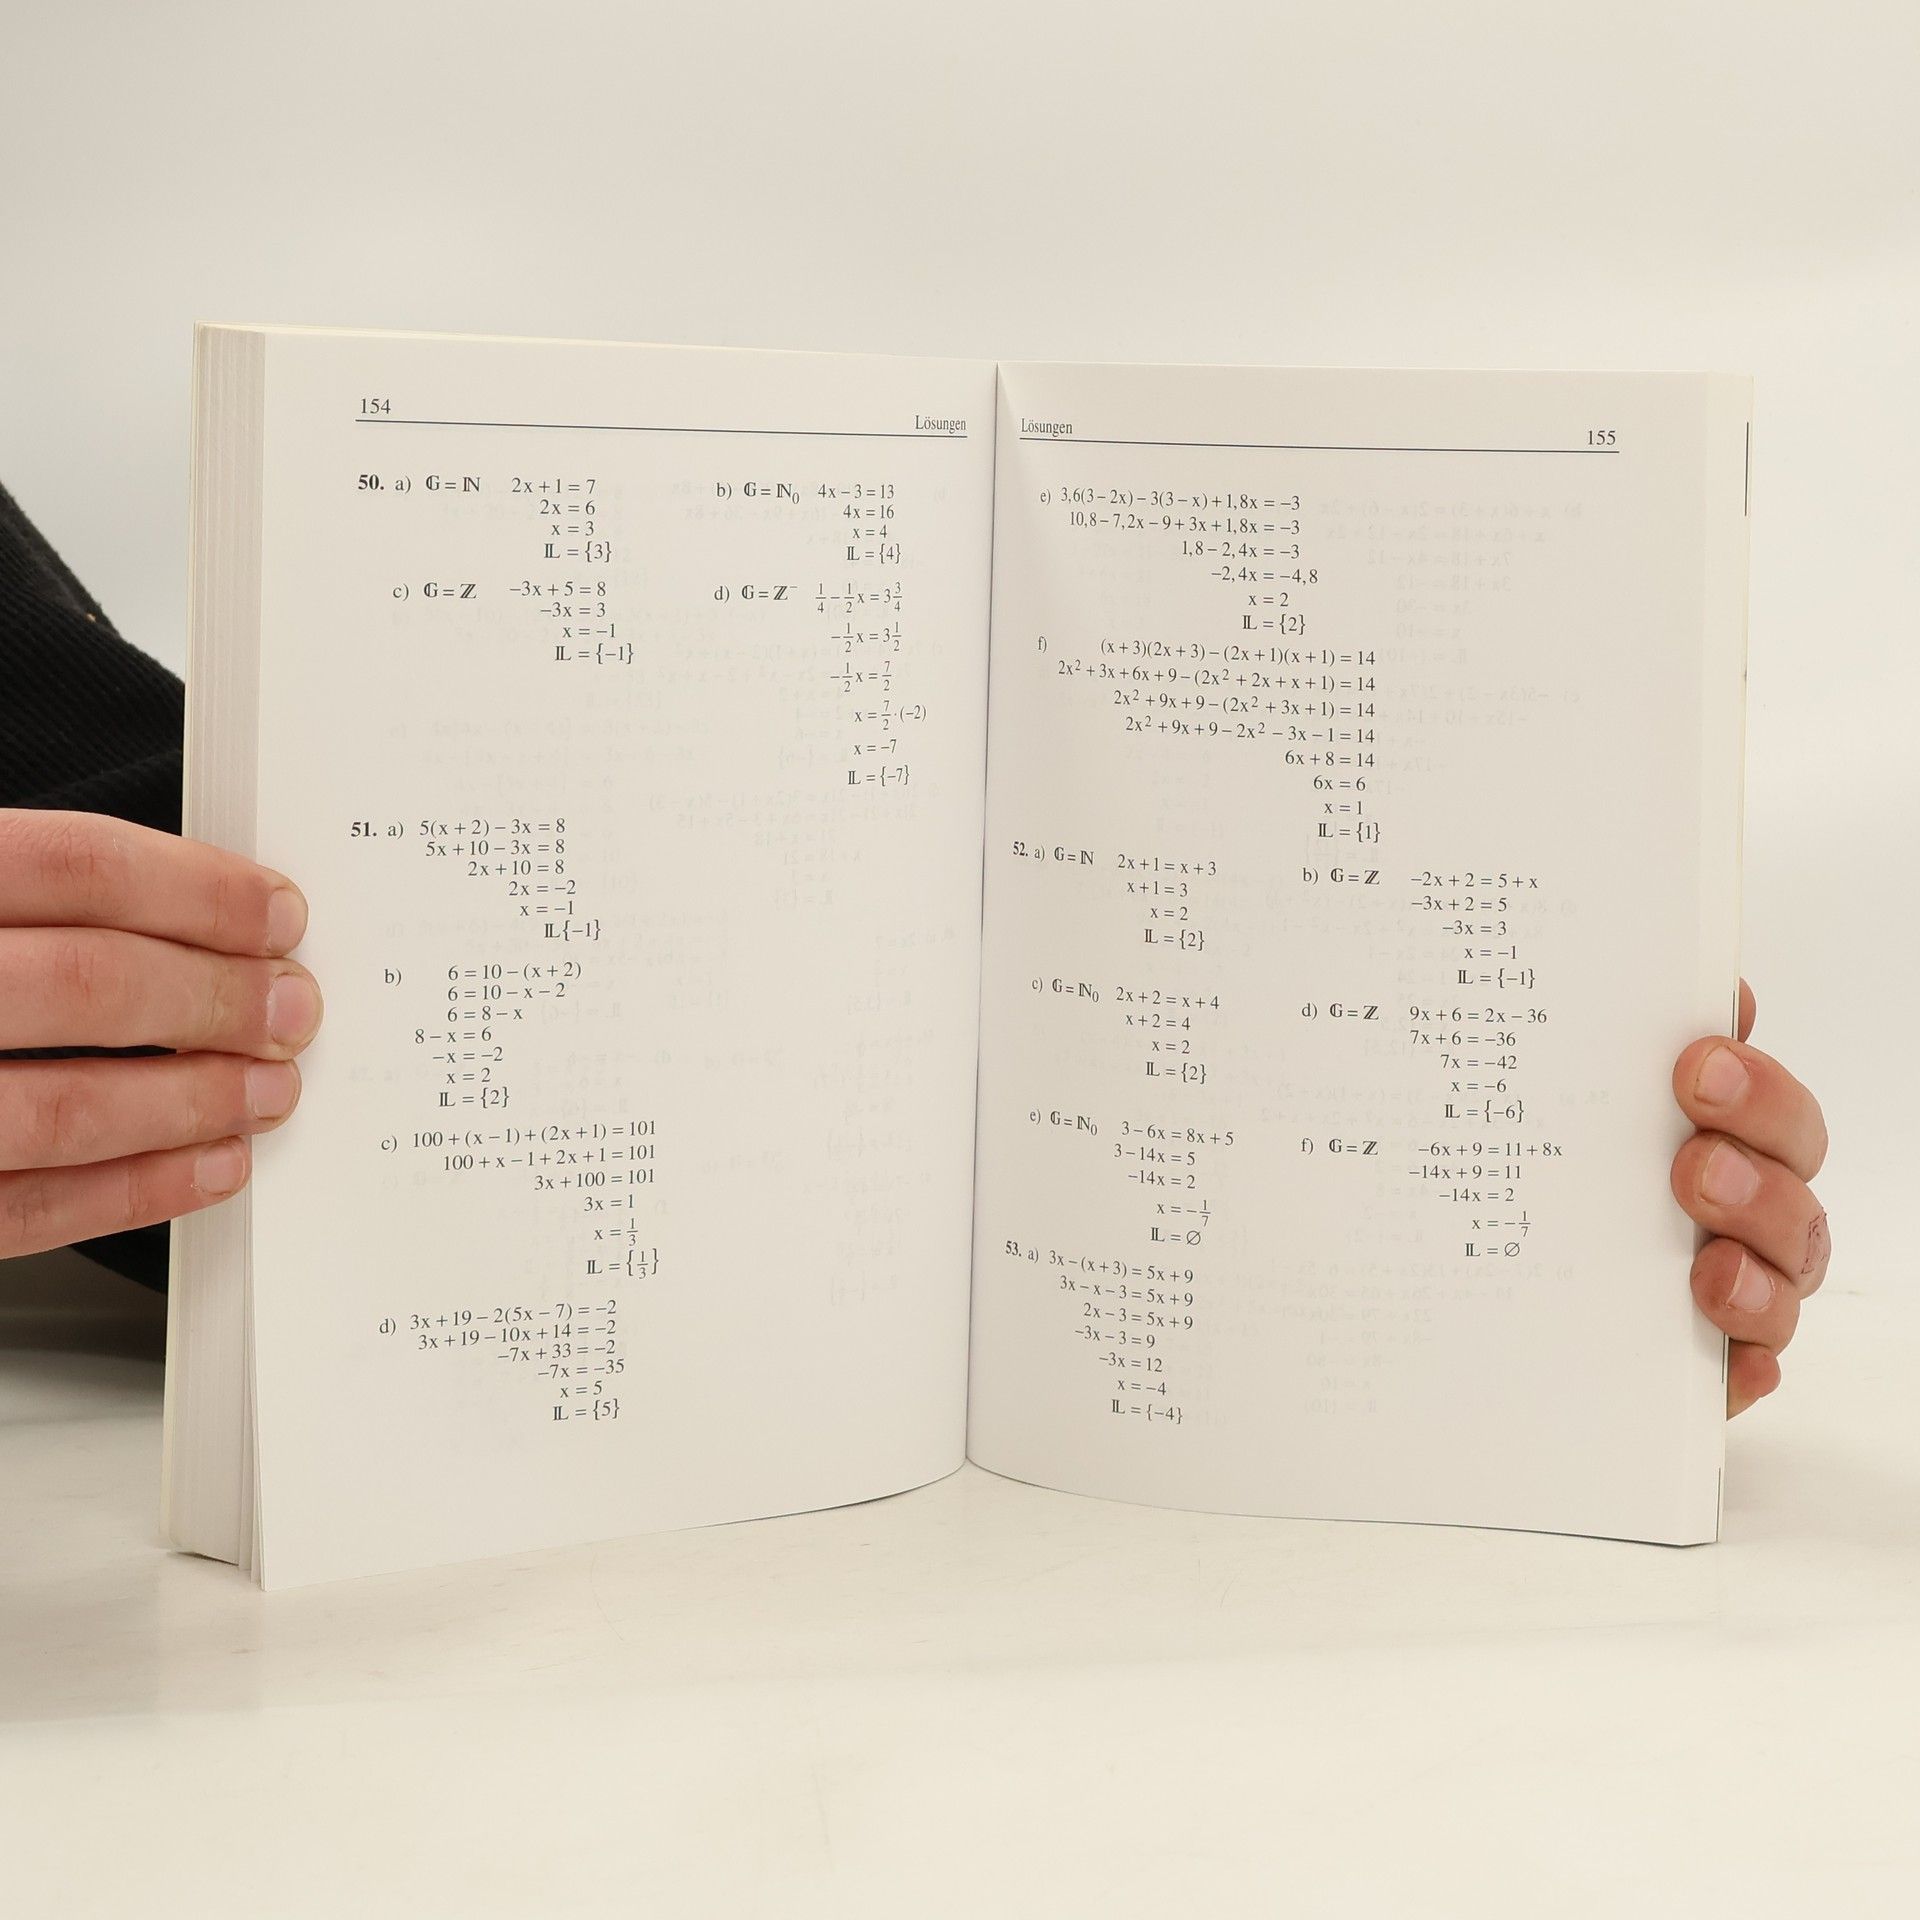 154
Lösungen
50. a) 𝔾 = ℕ 2x + 1 = 7
2x = 6
x = 3
𝕃 = {3}
b) 𝔾 = ℕ₀ 4x − 3 = 13
4x = 16
x = 4
𝕃 = {4}
c) 𝔾 = ℤ −3x + 5 = 8
−3x = 3
x = −1
𝕃 = {−1}
d) 𝔾 = ℤ⁻ 1/4 − 1/2 x = 3 3/4
−1/2 x = 3 1/2
−1/2 x = 7/2
x = 7/2 · (−2)
x = −7
𝕃 = {−7}
51. a) 5(x + 2) − 3x = 8
5x + 10 − 3x = 8
2x + 10 = 8
2x = −2
x = −1
𝕃{−1}
b) 6 = 10 − (x + 2)
6 = 10 − x − 2
6 = 8 − x
8 − x = 6
−x = −2
x = 2
𝕃 = {2}
c) 100 + (x − 1) + (2x + 1) = 101
100 + x − 1 + 2x + 1 = 101
3x + 100 = 101
3x = 1
x = 1/3
𝕃 = {1/3}
d) 3x + 19 − 2(5x − 7) = −2
3x + 19 − 10x + 14 = −2
−7x + 33 = −2
−7x = −35
x = 5
𝕃 = {5}
Lösungen
155
e) 3,6(3 − 2x) − 3(3 − x) + 1,8x = −3
10,8 − 7,2x − 9 + 3x + 1,8x = −3
1,8 − 2,4x = −3
−2,4x = −4,8
x = 2
𝕃 = {2}
f) (x + 3)(2x + 3) − (2x + 1)(x + 1) = 14
2x² + 3x + 6x + 9 − (2x² + 2x + x + 1) = 14
2x² + 9x + 9 − (2x² + 3x + 1) = 14
2x² + 9x + 9 − 2x² − 3x − 1 = 14
6x + 8 = 14
6x = 6
x = 1
𝕃 = {1}
52. a) 𝔾 = ℕ 2x + 1 = x + 3
x + 1 = 3
x = 2
𝕃 = {2}
b) 𝔾 = ℤ −2x + 2 = 5 + x
−3x + 2 = 5
−3x = 3
x = −1
𝕃 = {−1}
c) 𝔾 = ℕ₀ 2x + 2 = x + 4
x + 2 = 4
x = 2
𝕃 = {2}
d) 𝔾 = ℤ 9x + 6 = 2x − 36
7x + 6 = −36
7x = −42
x = −6
𝕃 = {−6}
e) 𝔾 = ℕ₀ 3 − 6x = 8x + 5
3 − 14x = 5
−14x = 2
x = −1/7
𝕃 = ∅
f) 𝔾 = ℤ −6x + 9 = 11 + 8x
−14x + 9 = 11
−14x = 2
x = −1/7
𝕃 = ∅
53. a) 3x − (x + 3) = 5x + 9
3x − x − 3 = 5x + 9
2x − 3 = 5x + 9
−3x − 3 = 9
−3x = 12
x = −4
𝕃 = {−4}